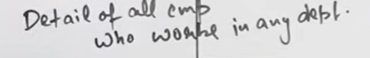 Detail of all emp
who worke in any dept.